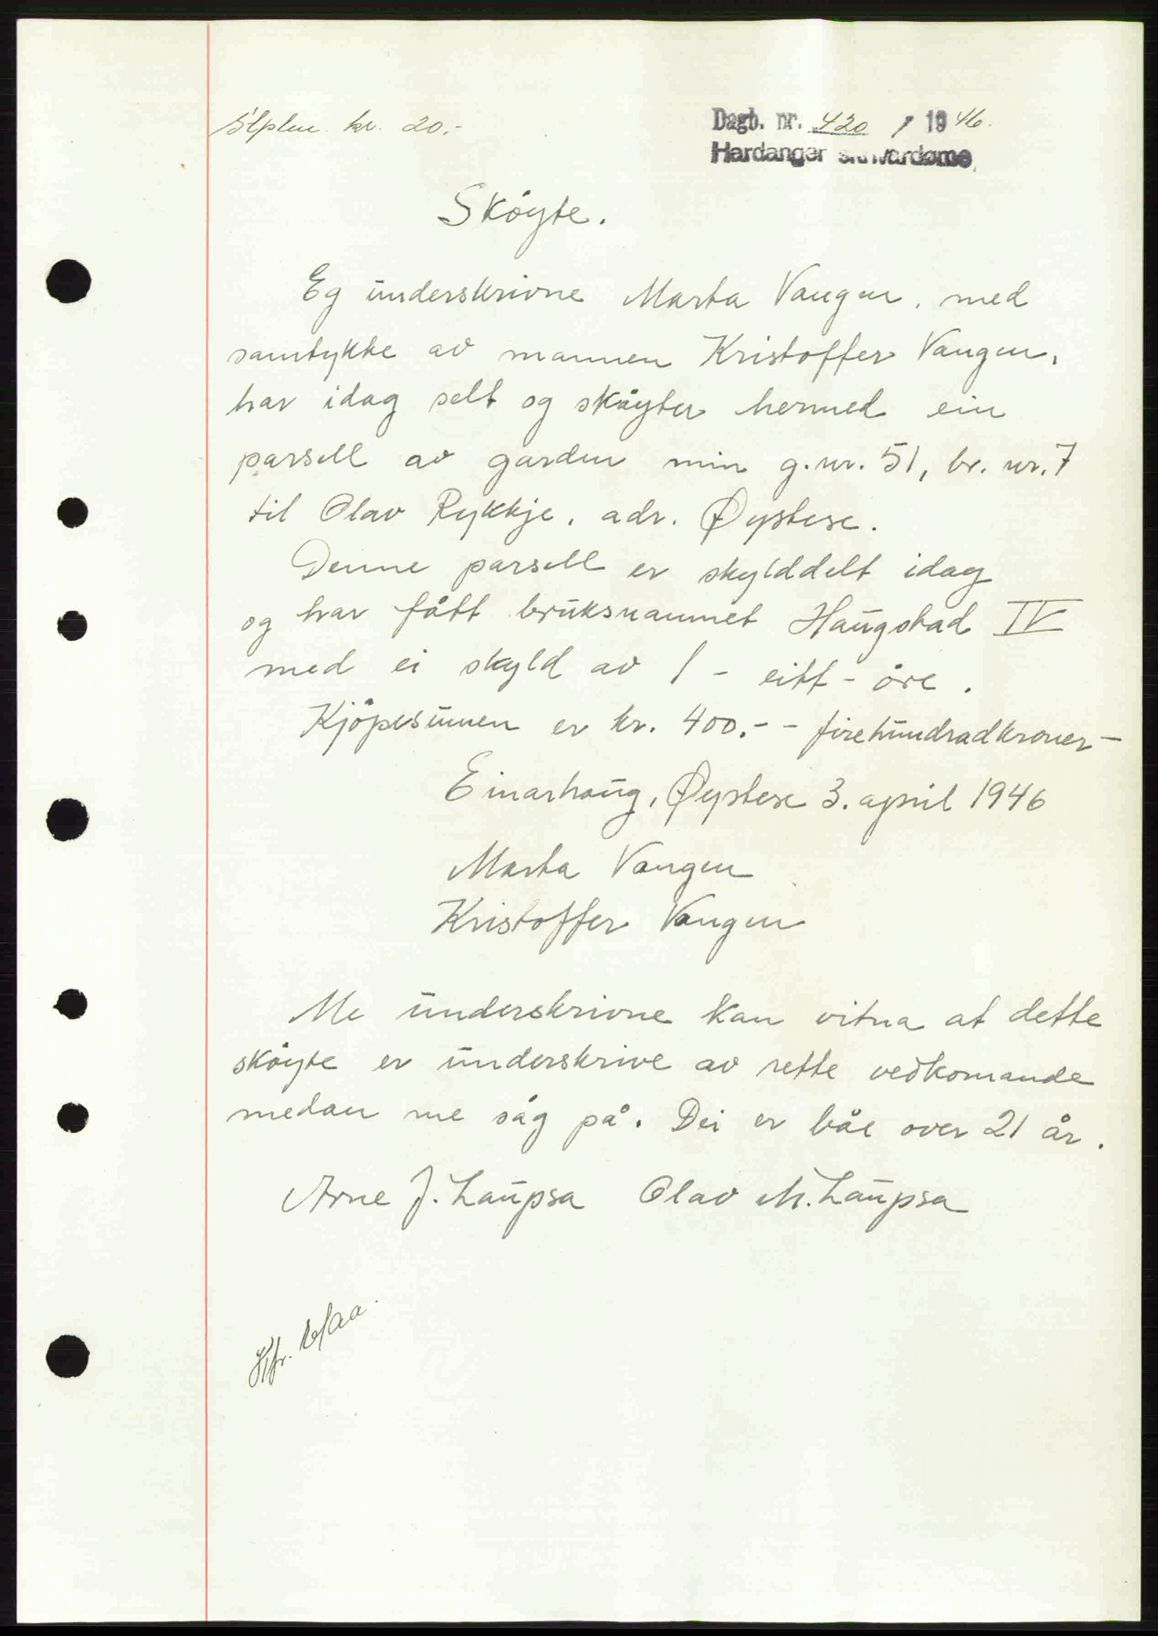 Stplm. kr. 20.-
Dagb. nr. 420 / 1946.
Hardanger
Skøyte.
Eg underskrivne Marta Vangen, med
samtykke av mannen Kristoffer Vangen,
har idag selt og skøyter hermed ein
parsell av garden min g.nr. 51, br. nr. 7
til Olav Rykkje, adr. Øystese.
Denne parsell er skylddelt idag
og har fått bruksnamnet Haugstad IV
med ei skyld av 1 - eitt - öre.
Kjöpesummen er kr. 400.- - firehundradkroner -
Einarhaug, Øystese 3. april 1946
Marta Vangen
Kristoffer Vangen
Me underskrivne kan vitna at dette
skøyte er underskrive av rette vedkomande
medan me såg på. Dei er båe over 21 år.
Arne J. Laupsa Olav M. Laupsa